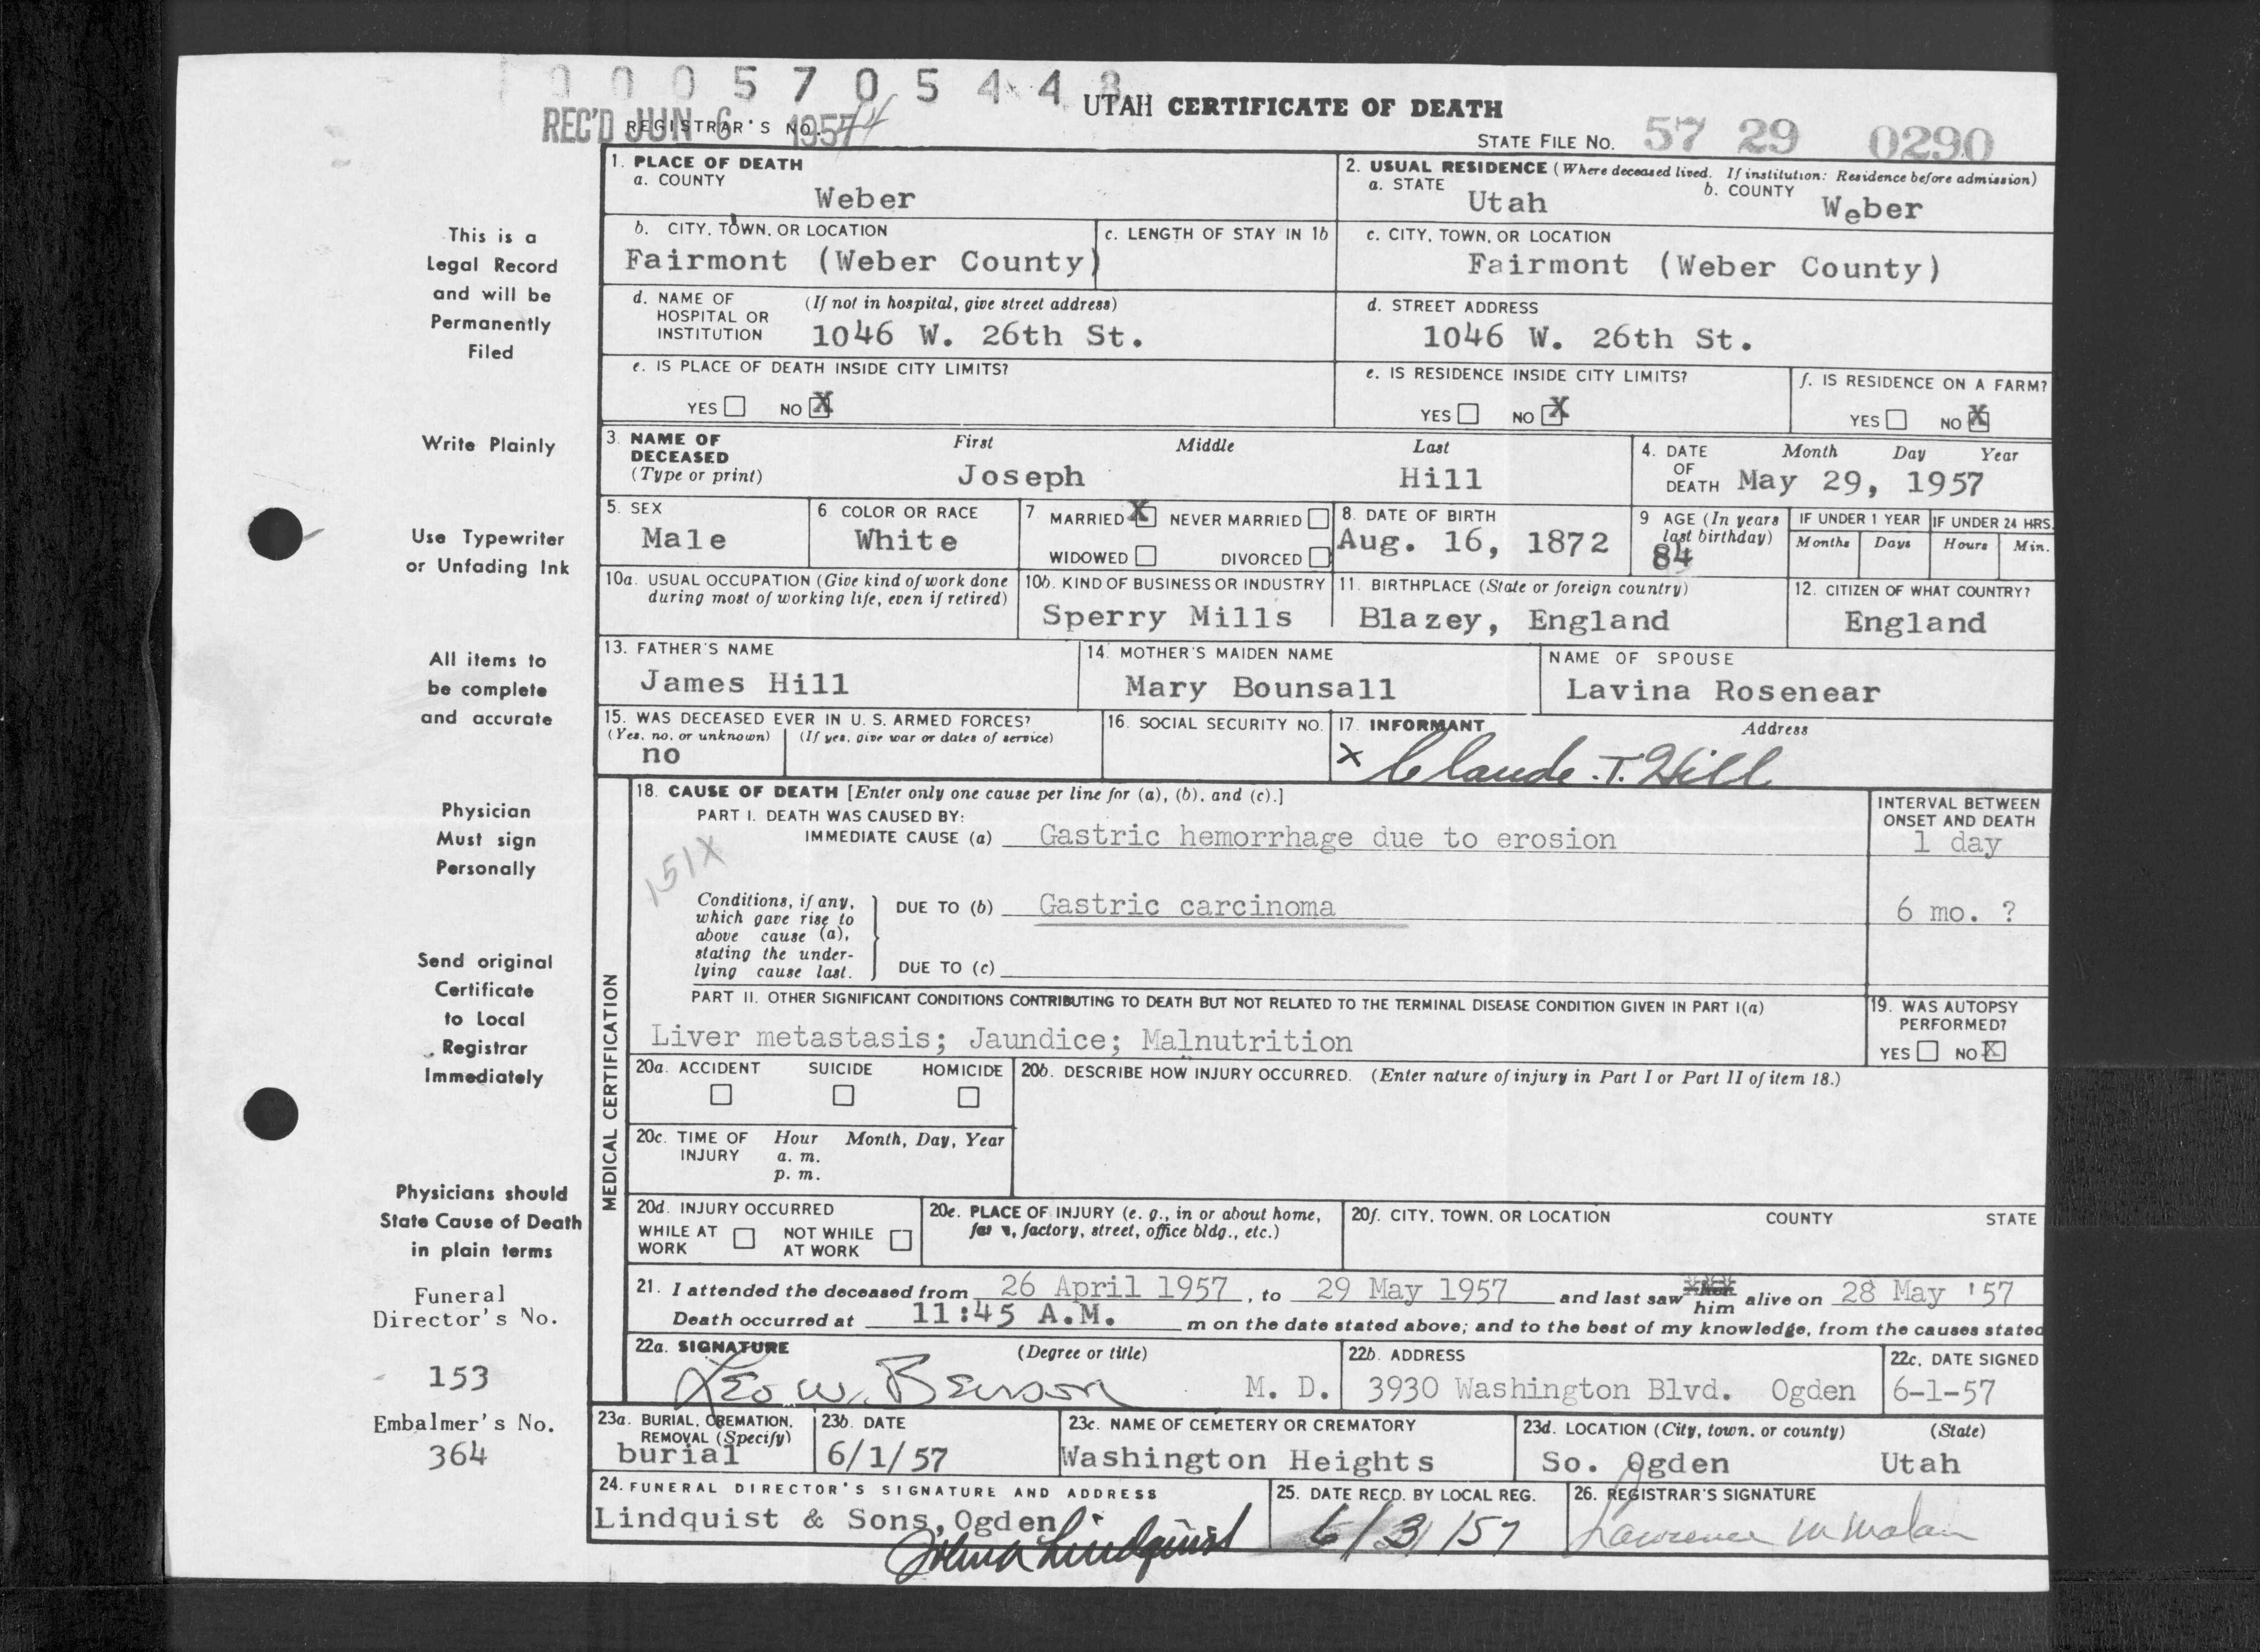 0 0 0 5 7 0 5 4 4 8
UTAH CERTIFICATE OF DEATH
REC'D JUN 6 1957
REGISTRAR'S NO. 44
STATE FILE NO. 57 29 0290
1. PLACE OF DEATH
a. COUNTY
Weber
2. USUAL RESIDENCE (Where deceased lived. If institution: Residence before admission)
a. STATE
Utah
b. COUNTY
Weber
b. CITY, TOWN, OR LOCATION
Fairmont (Weber County)
c. LENGTH OF STAY IN 1b
c. CITY, TOWN, OR LOCATION
Fairmont (Weber County)
d. NAME OF HOSPITAL OR INSTITUTION
(If not in hospital, give street address)
1046 W. 26th St.
d. STREET ADDRESS
1046 W. 26th St.
e. IS PLACE OF DEATH INSIDE CITY LIMITS?
YES NO X
e. IS RESIDENCE INSIDE CITY LIMITS?
YES NO X
f. IS RESIDENCE ON A FARM?
YES NO X
3. NAME OF DECEASED
(Type or print)
First Middle Last
Joseph Hill
4. DATE OF DEATH
Month Day Year
May 29, 1957
5. SEX
Male
6 COLOR OR RACE
White
7 MARRIED X NEVER MARRIED
WIDOWED DIVORCED
8. DATE OF BIRTH
Aug. 16, 1872
9 AGE (In years last birthday)
84
IF UNDER 1 YEAR
Months Days
IF UNDER 24 HRS.
Hours Min.
10a. USUAL OCCUPATION (Give kind of work done during most of working life, even if retired)
10b. KIND OF BUSINESS OR INDUSTRY
Sperry Mills
11. BIRTHPLACE (State or foreign country)
Blazey, England
12. CITIZEN OF WHAT COUNTRY?
England
13. FATHER'S NAME
James Hill
14. MOTHER'S MAIDEN NAME
Mary Bounsall
NAME OF SPOUSE
Lavina Rosenear
15. WAS DECEASED EVER IN U. S. ARMED FORCES?
(Yes, no, or unknown) (If yes, give war or dates of service)
no
16. SOCIAL SECURITY NO.
17. INFORMANT Address
x Claude T. Hill
MEDICAL CERTIFICATION
18. CAUSE OF DEATH [Enter only one cause per line for (a), (b), and (c).]
PART I. DEATH WAS CAUSED BY:
IMMEDIATE CAUSE (a) Gastric hemorrhage due to erosion
INTERVAL BETWEEN ONSET AND DEATH
1 day
151X
Conditions, if any, which gave rise to above cause (a), stating the underlying cause last.
DUE TO (b) Gastric carcinoma
6 mo. ?
DUE TO (c)
PART II. OTHER SIGNIFICANT CONDITIONS CONTRIBUTING TO DEATH BUT NOT RELATED TO THE TERMINAL DISEASE CONDITION GIVEN IN PART I(a)
Liver metastasis; Jaundice; Malnutrition
19. WAS AUTOPSY PERFORMED?
YES NO X
20a. ACCIDENT SUICIDE HOMICIDE
20b. DESCRIBE HOW INJURY OCCURRED. (Enter nature of injury in Part I or Part II of item 18.)
20c. TIME OF INJURY
Hour Month, Day, Year
a. m.
p. m.
20d. INJURY OCCURRED
WHILE AT WORK NOT WHILE AT WORK
20e. PLACE OF INJURY (e. g., in or about home, farm, factory, street, office bldg., etc.)
20f. CITY, TOWN, OR LOCATION COUNTY STATE
21. I attended the deceased from 26 April 1957, to 29 May 1957 and last saw him alive on 28 May '57
Death occurred at 11:45 A.M. m on the date stated above; and to the best of my knowledge, from the causes stated
22a. SIGNATURE (Degree or title)
Leo W. Benson M. D.
22b. ADDRESS
3930 Washington Blvd. Ogden
22c. DATE SIGNED
6-1-57
23a. BURIAL, CREMATION, REMOVAL (Specify)
burial
23b. DATE
6/1/57
23c. NAME OF CEMETERY OR CREMATORY
Washington Heights
23d. LOCATION (City, town, or county) (State)
So. Ogden Utah
24. FUNERAL DIRECTOR'S SIGNATURE AND ADDRESS
Lindquist & Sons, Ogden
Lindquist
25. DATE RECD. BY LOCAL REG.
6/3/57
26. REGISTRAR'S SIGNATURE
Lawrence M Malan
This is a
Legal Record
and will be
Permanently
Filed
Write Plainly
Use Typewriter
or Unfading Ink
All items to
be complete
and accurate
Physician
Must sign
Personally
Send original
Certificate
to Local
Registrar
Immediately
Physicians should
State Cause of Death
in plain terms
Funeral
Director's No.
153
Embalmer's No.
364